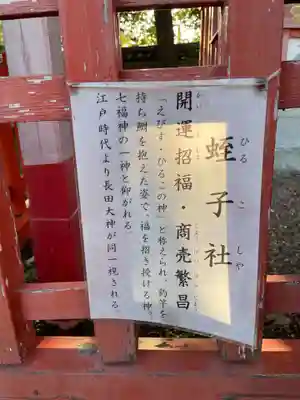 蛭子社
ひるこしゃ
開運招福・商売繁昌
「えびす・ひるこの神」と称えられ、釣竿を
持ち鯛を抱えた姿で、福を招き授ける神。
七福神の一神と仰がれる。
江戸時代より長田大神が同一視される